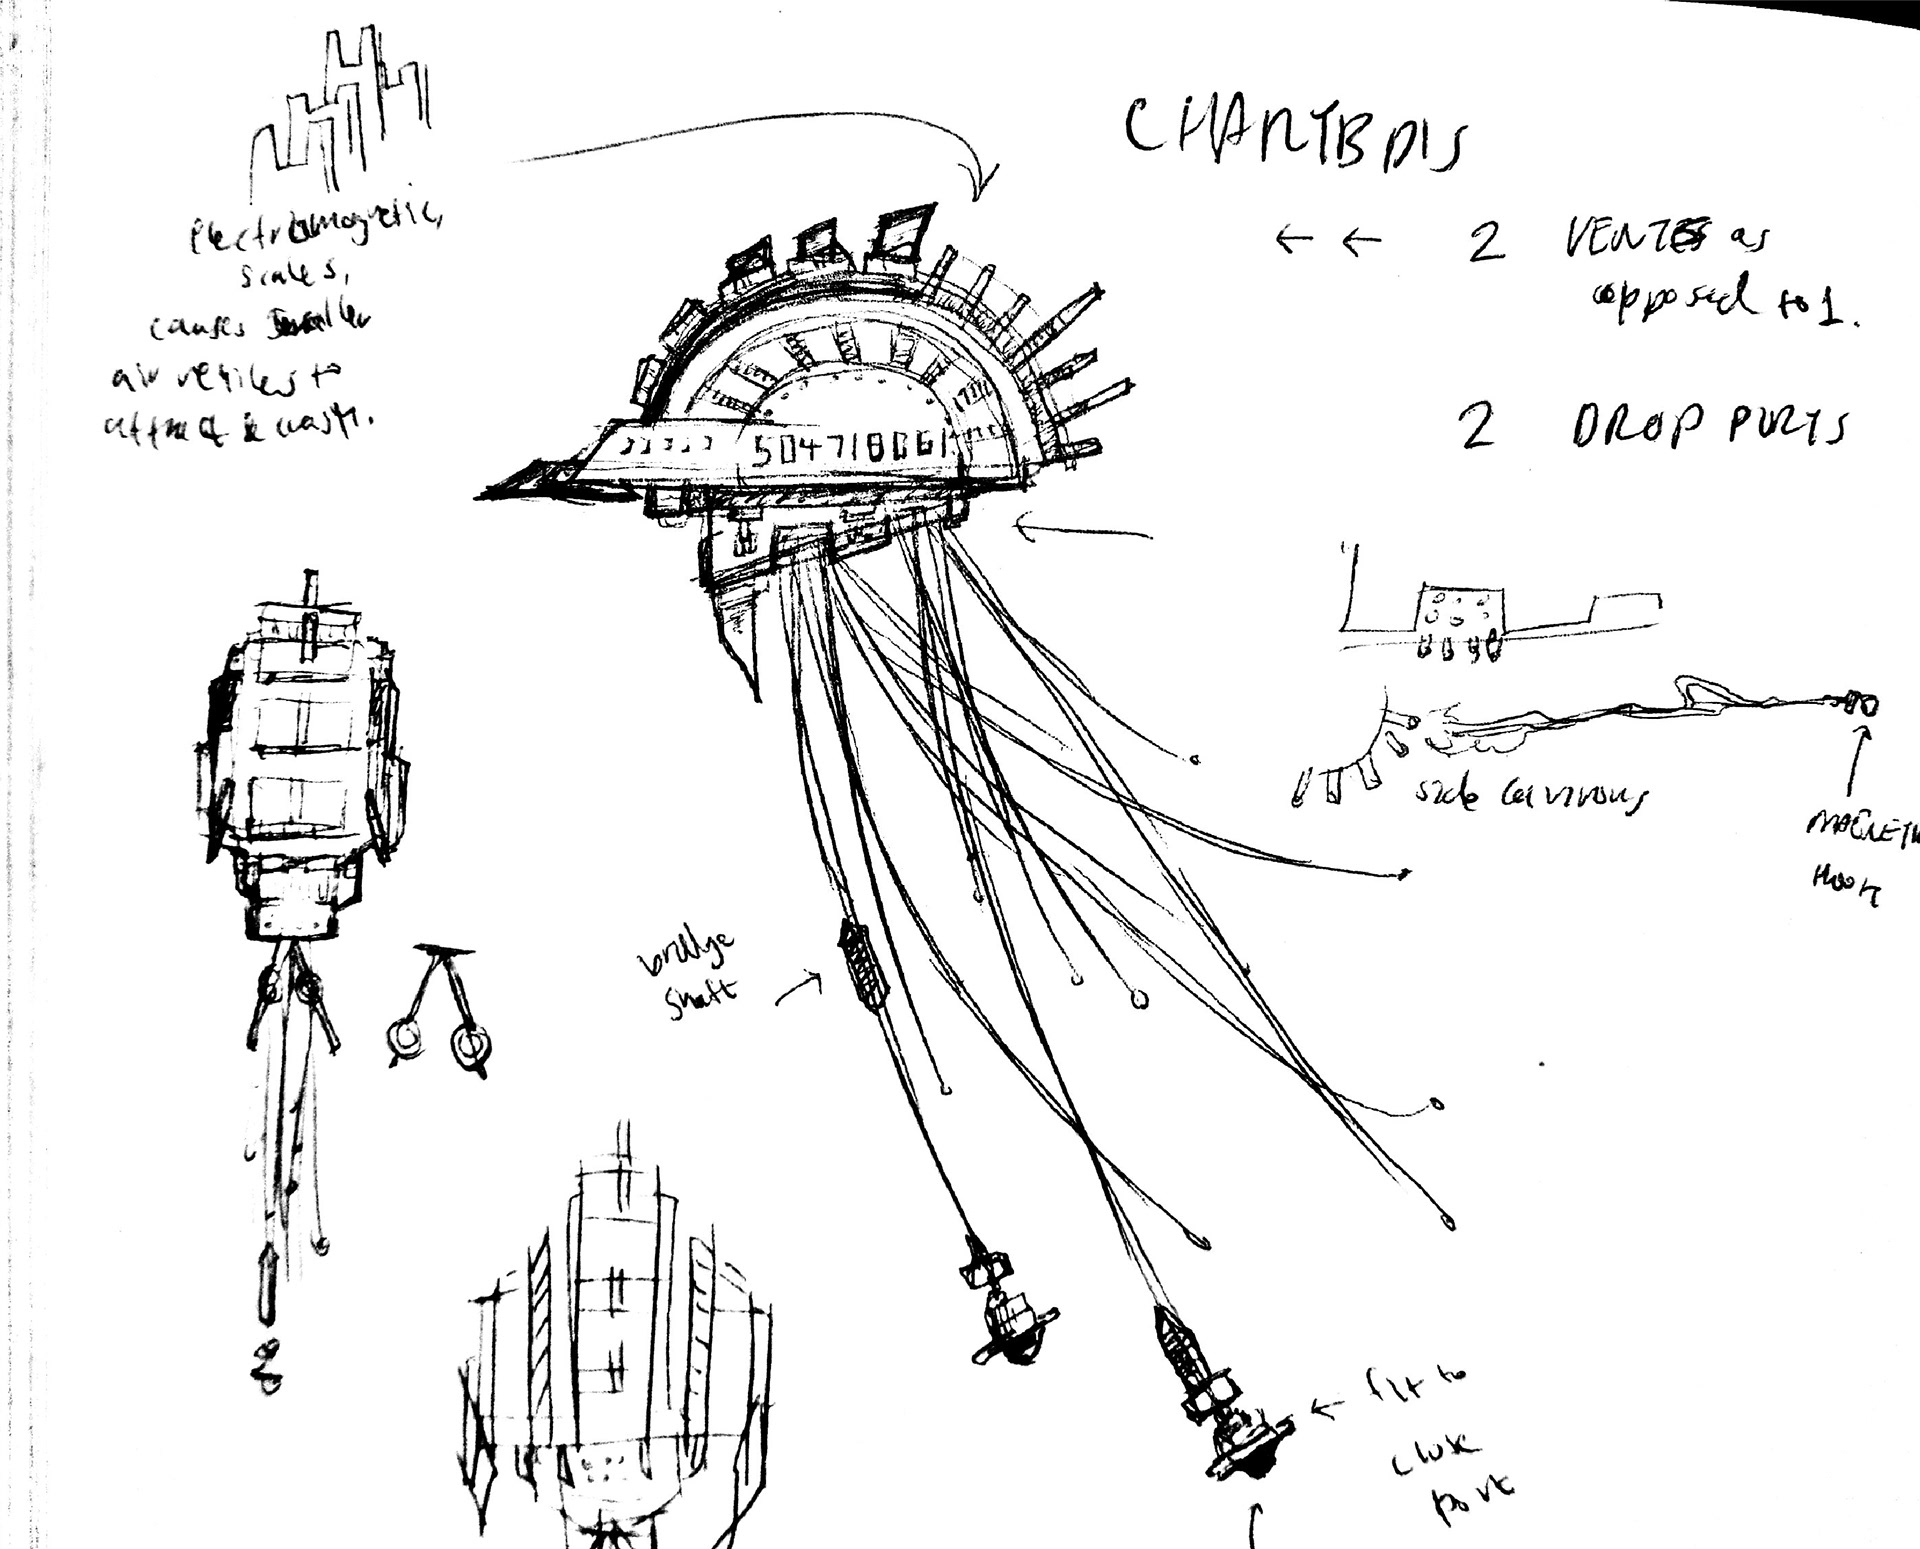 CHARYBDIS
electromagnetic,
scales,
causes smaller
air vehicles to
attract & crash.
← ← 2 VENTS as
opposed to 1.
2 DROP PORTS
504718061
MAGNETIC
HOOK
bridge
shaft
← fit to
close
port